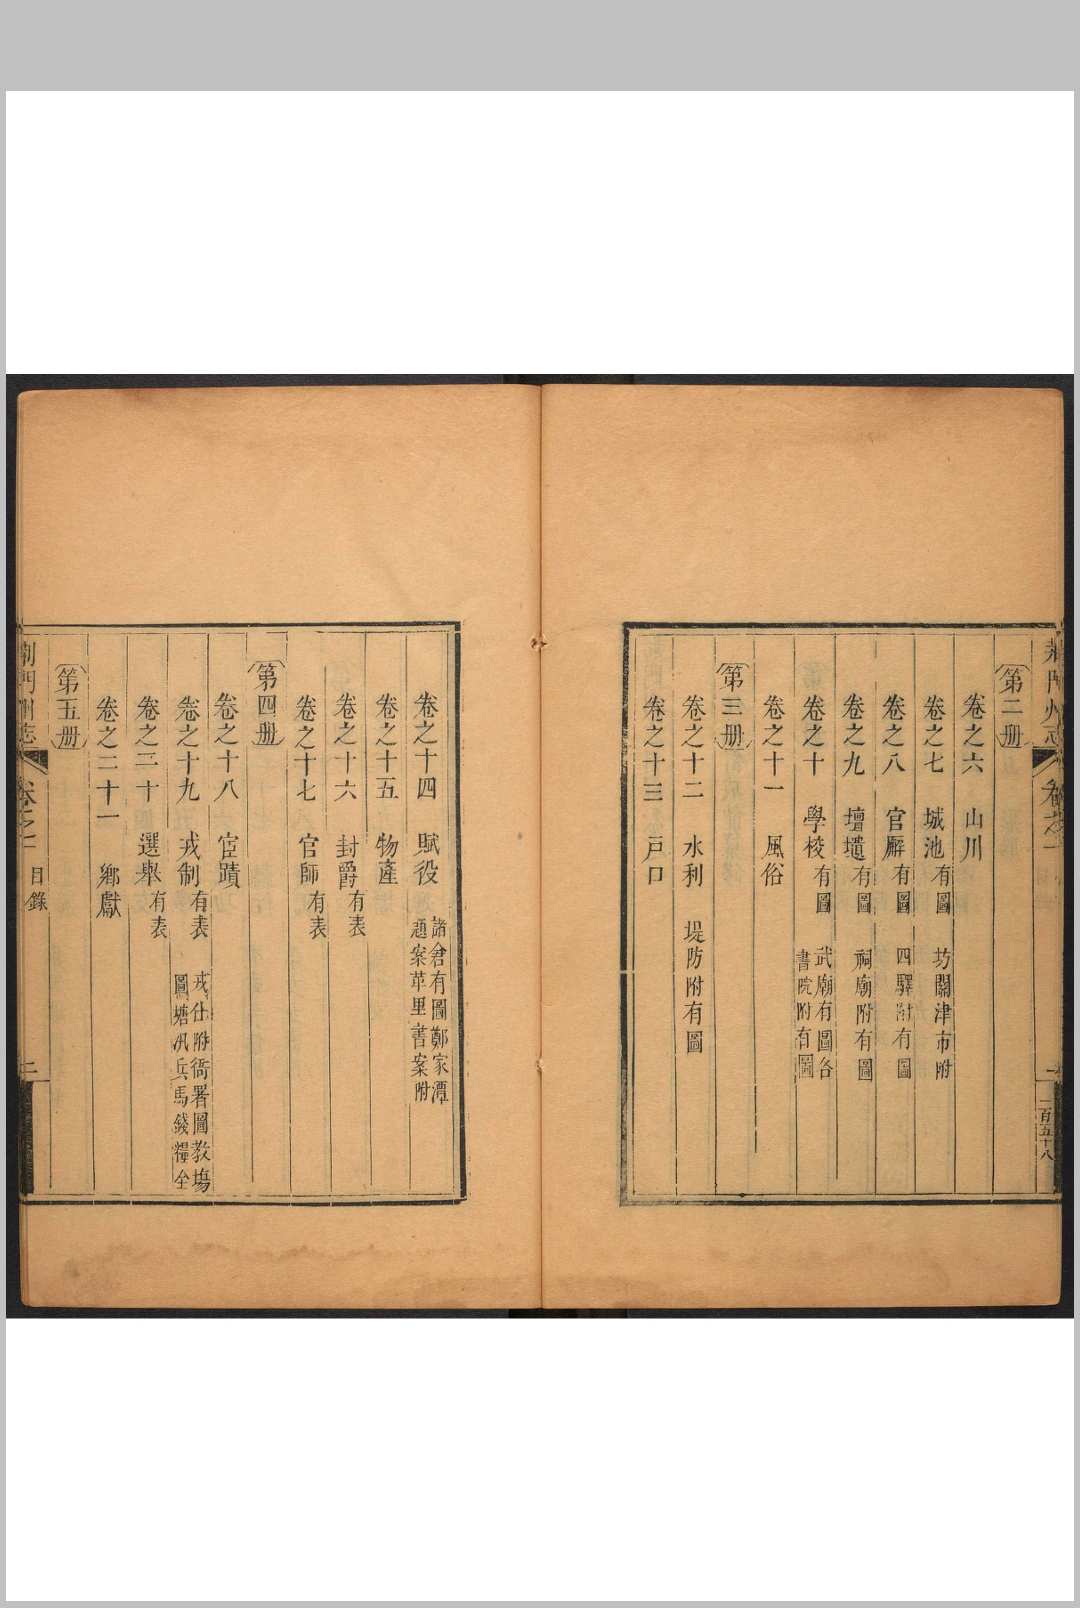 荆門州志
卷之一
一
一百五十八
第二册
卷之六 山川
卷之七 城池有圖 坊關津市附
卷之八 官廨有圖 四驛附有圖
卷之九 壇壝有圖 祠廟附有圖
卷之十 學校有圖 武廟有圖各
書院附有圖
卷之十一 風俗
第三册
卷之十二 水利 堤防附有圖
卷之十三 戸口
卷之十四 賦役 諸倉有圖鄭家潭
題案革里書案附
卷之十五 物產
卷之十六 封爵有表
卷之十七 官師有表
第四册
卷之十八 宦蹟
卷之十九 戎制有表 戎仕附衙署圖教塲
圖塘汛兵馬錢糧全
卷之二十 選舉有表
卷之二十一 鄉獻
第五册
荆門州志
卷之一
目錄
二